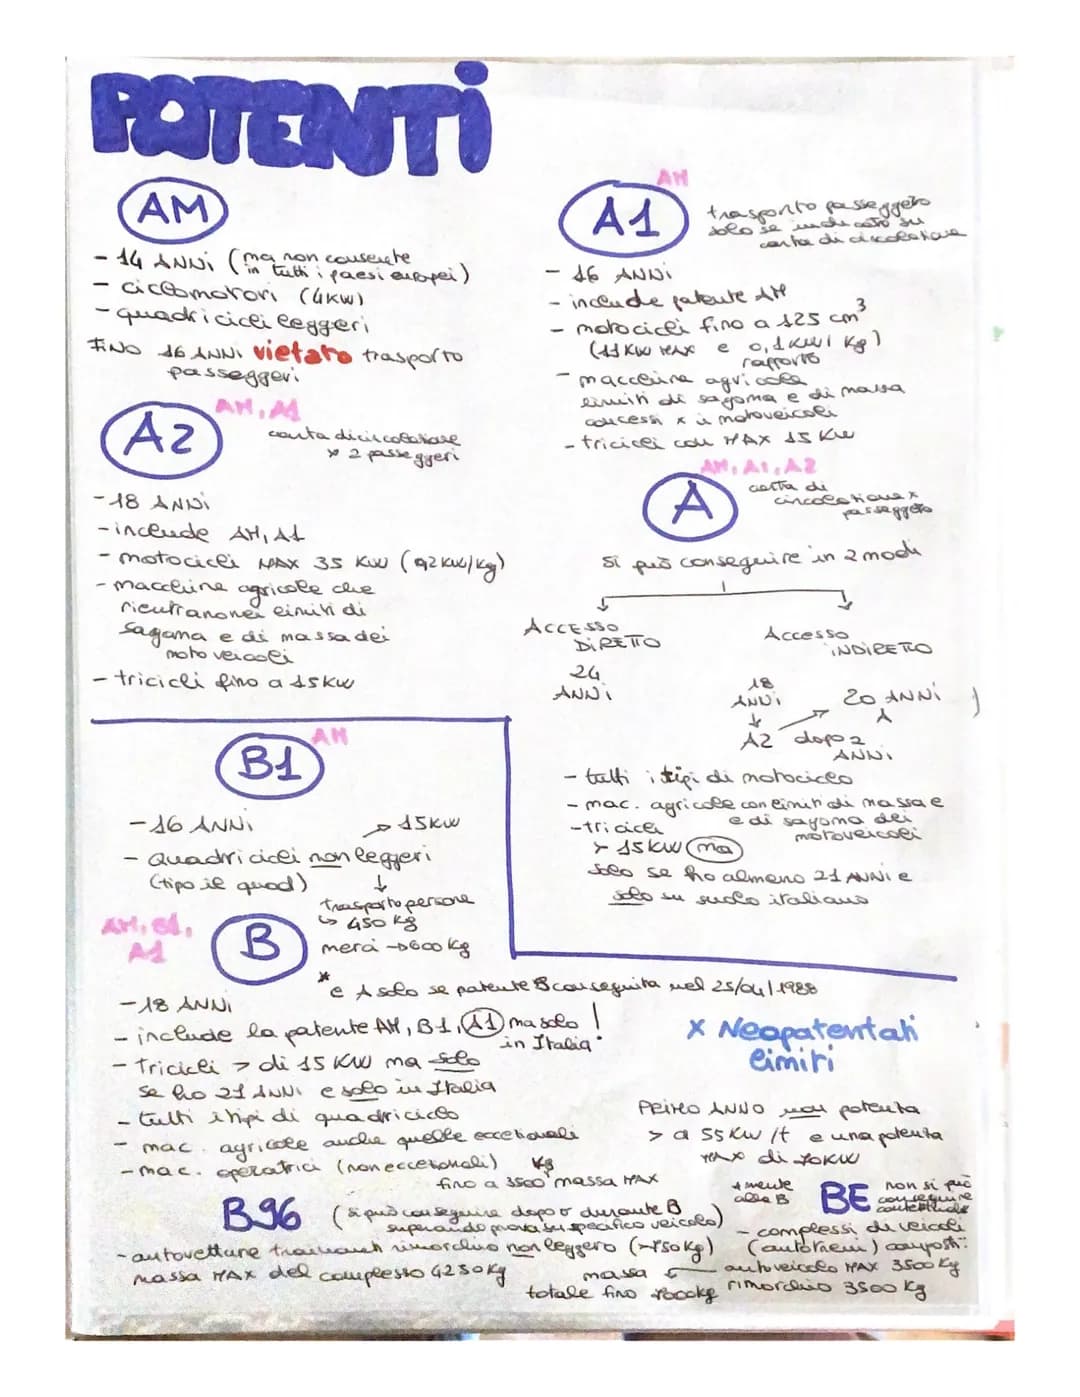 POTENTi
AM
- 14 ANNi (ma non consente
in tutti i paesi europei)
- ciclomotori (4KW)
- quadricicli leggeri
FiNO 16 ANNi vietato trasporto
passeggeri
AM
A1
trasporto passeggero
solo se indicato su
carta di circolazione
- 16 ANNi
- include patente AM
- motocicli fino a 125 cm³
(11 KW MAX e 0,1 KW/ Kg)
rapporto
- macchine agricole
limiti di sagoma e di massa
concessi x i motoveicoli
- tricicli con MAX 15 KW
AM, A1
A2
carta di circolazione
x 2 passeggeri
- 18 ANNi
- include AM, A1
- motocicli MAX 35 KW (0,2 KW/Kg)
- macchine agricole che
rientrano nei limiti di
sagoma e di massa dei
motoveicoli
- tricicli fino a 15KW
AM, A1, A2
A
carta di
circolazione x
passeggero
si può conseguire in 2 modi
ACCESSO
DiRETTO
24
ANNi
Accesso
iNDiRETTO
18
ANNi
A2
dopo 2
ANNi
20 ANNi
A
- tutti i tipi di motociclo
- mac. agricole con limiti di massa e
e di sagoma dei
motoveicoli
- tricicli
> 15 KW ma
solo se ho almeno 21 ANNi e
solo su suolo italiano
AM
B1
- 16 ANNi
15KW
- Quadricicli non leggeri
(tipo il quad)
trasporto persone
450 Kg
merci → 600 Kg
AM, B1,
A1
B
* e A solo se patente B conseguita nel 25/04/1988
- 18 ANNi
- include la patente AM, B1, A1 ma solo !
in Italia
- Tricicli > di 15 KW ma solo
se ho 21 ANNi e solo in Italia
- tutti i tipi di quadriciclo
- mac. agricole anche quelle eccezionali
- mac. operatrici (non eccezionali)
fino a 3500 Kg massa MAX
x Neopatentati
limiti
PRiMO ANNO non potenza
> a 55 KW /t e una potenza
MAX di 70KW
B96
(si può conseguire dopo o durante B
superando prova su specifico veicolo)
- autovetture trainanti rimorchio non leggero (>750 Kg)
massa MAX del complesso 4250Kg
alla B
BE
non si può
conseguire
- complessi di veicoli
(autotreni) composti:
autoveicolo MAX 3500 Kg
rimorchio 3500 Kg
massa
totale fino 7000Kg